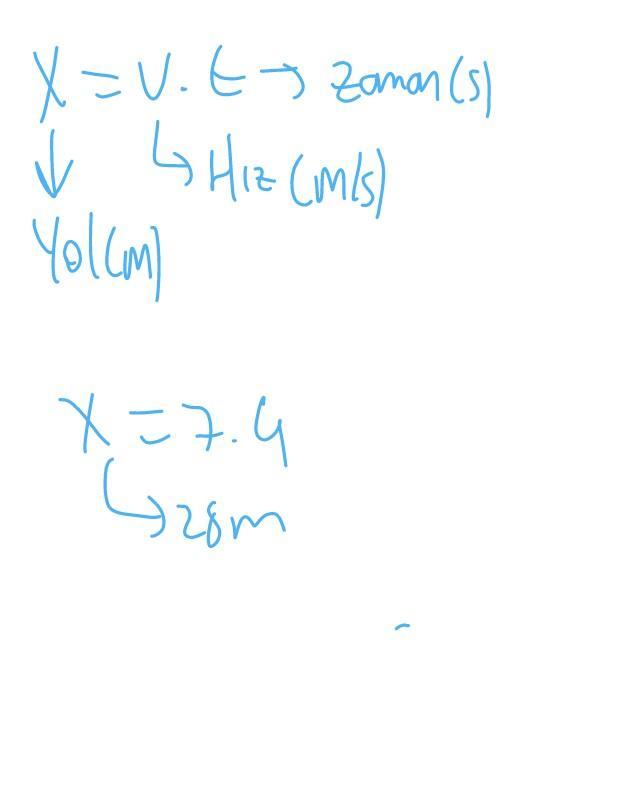 X = V . t → Zaman (s)
↓ ↳ Hız (m/s)
Yol (m)
X = 7 . 4
↳ 28m